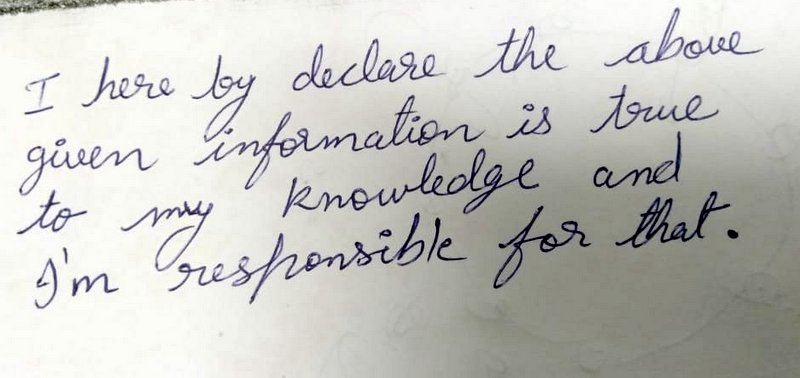 I here by declare the above
given information is true
to my knowledge and
I'm responsible for that.